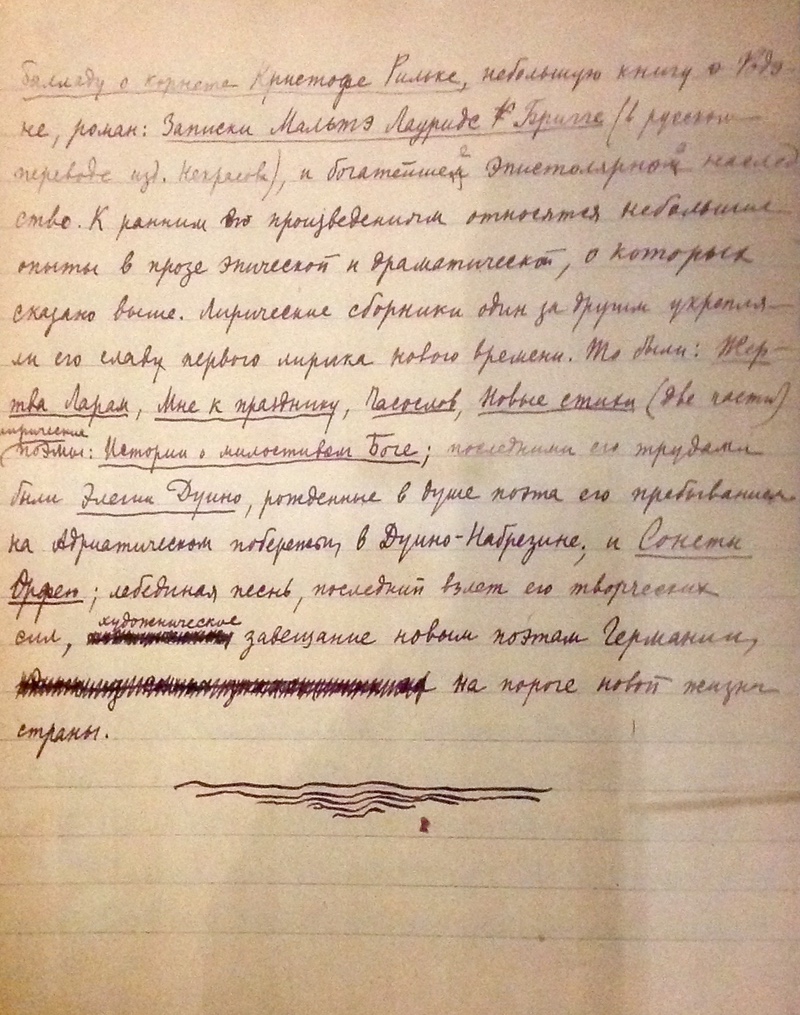 Балладу о корнете Кристофе Рильке, небольшую книгу о Родэ-
не, роман: Записки Мальтэ Лауридс Бригге (в русском
переводе изд. Некрасова), и богатейшее эпистолярное наслед
ство. К ранним его произведениям относятся небольшие
опыты в прозе эпической и драматической, о которых
сказано выше. Лирические сборники один за другим укрепля-
ли его славу первого лирика нового времени. То были: Жер-
тва Ларам, Мне к празднику, Часослов, Новые стихи (две части)
лирические
поэмы: Истории о милостивом Боге; последними его трудами
были Элегии Дуино, рожденные в душе поэта его пребыванием
на Адриатическом побережьи, в Дуино-Набрезине, и Сонеты
Орфею; лебединая песнь, последний взлет его творческих
художническое
сил, завещание новым поэтам Германии,
на пороге новой жизни
страны.